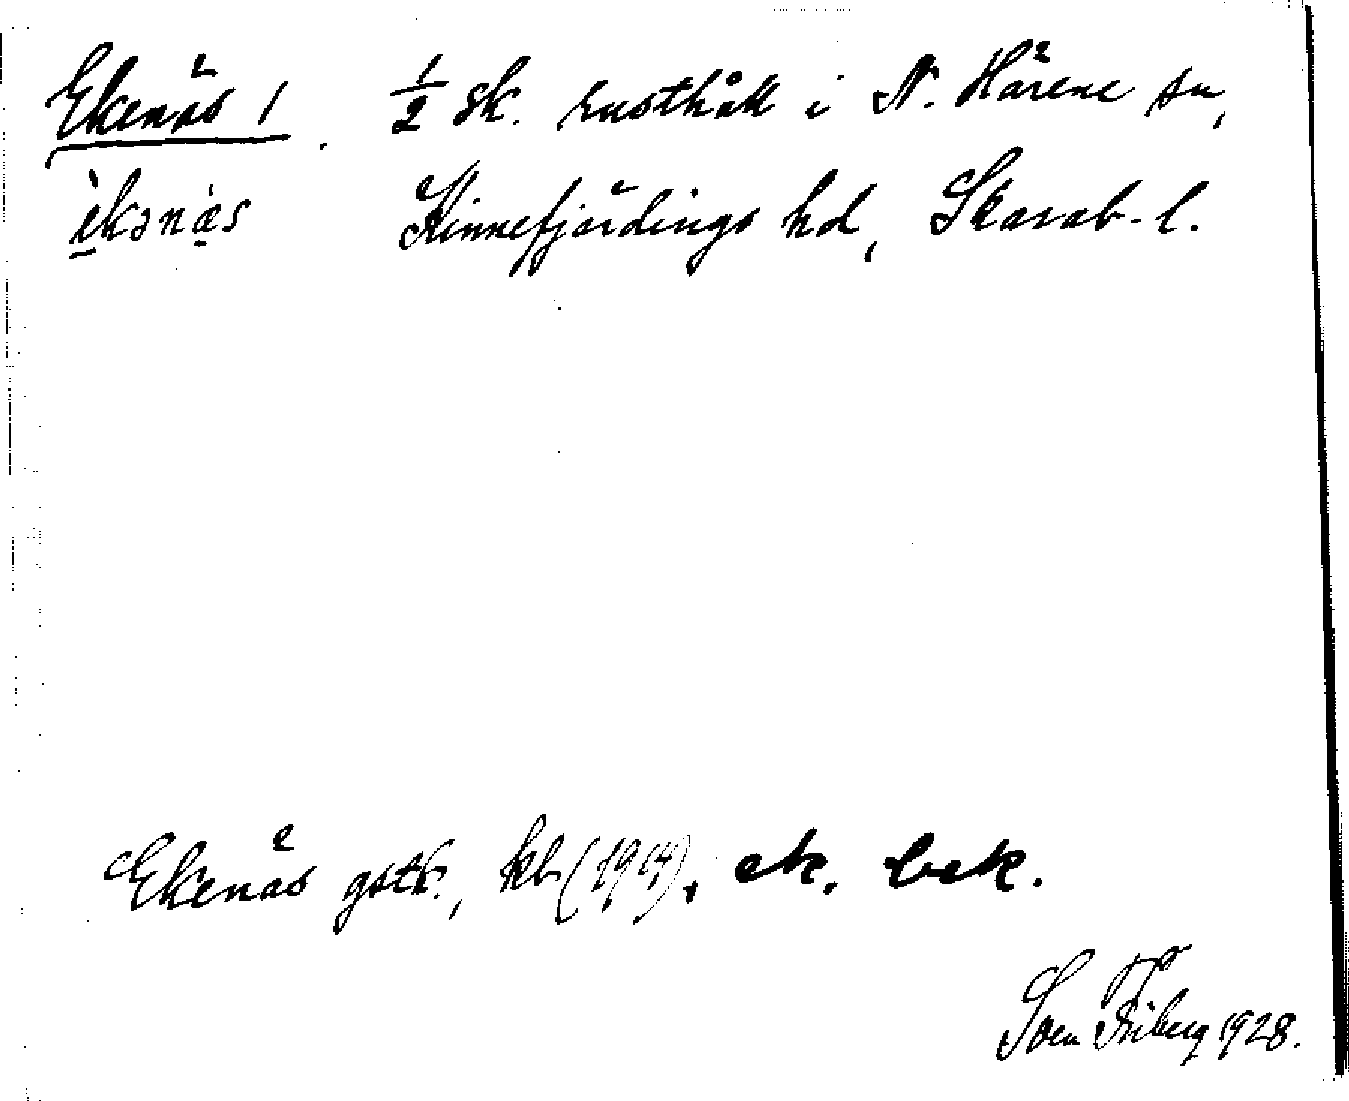 Ekenäs 1. 1/2 sk. rusthåll i N. Härene sn,
ìkənàs Kinnefjärdings hd, Skarab-l.
Ekenäs gstk., kb (1914), ek. bek.
Sven Friberg 1928.